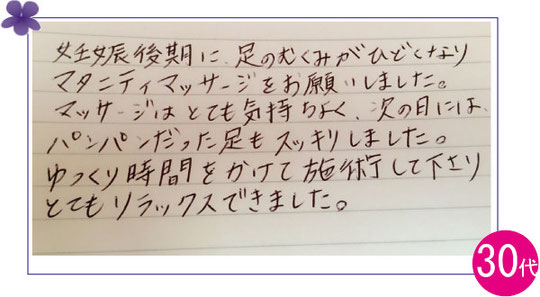 妊娠後期に、足のむくみがひどくなり
マタニティマッサージをお願いしました。
マッサージはとても気持ちよく、次の日には、
パンパンだった足もスッキリしました。
ゆっくり時間をかけて施術して下さり
とてもリラックスできました。
30代